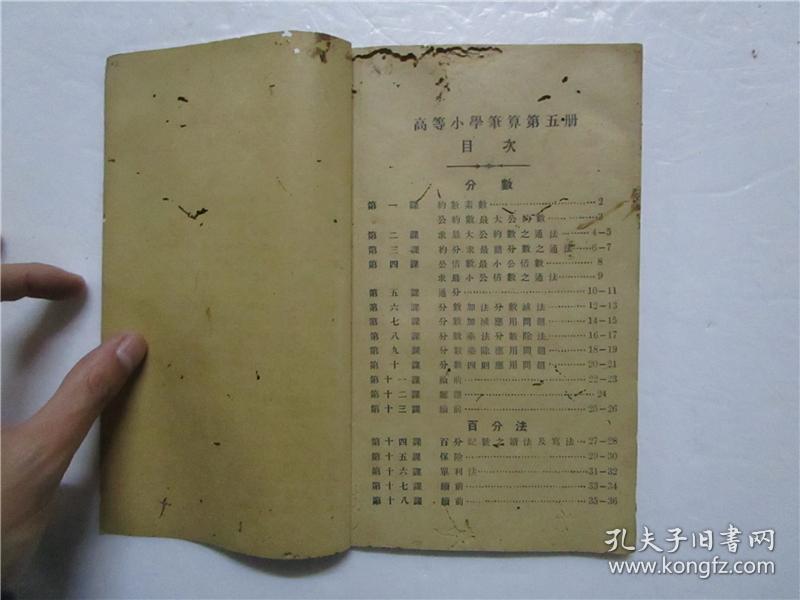 高等小學筆算第五册
目次
分數
第一課 約數素數……2
公約數最大公約數……3
第二課 求最大公約數之通法……4—5
第三課 約分求最簡分數之通法……6—7
第四課 公倍數最小公倍數……8
求最小公倍數之通法……9
第五課 通分……10—11
第六課 分數加法分數減法……12—13
第七課 分數加減應用問題……14—15
第八課 分數乘法分數除法……16—17
第九課 分數乘除應用問題……18—19
第十課 分數四則應用問題……20—21
第十一課 續前……22—23
第十二課 ……24
第十三課 續前……25—26
百分法
第十四課 百分記數之讀法及寫法……27—28
第十五課 保險……29—30
第十六課 單利法……31—32
第十七課 續前……33—34
第十八課 續前……35—36
孔夫子旧书网
www.kongfz.com